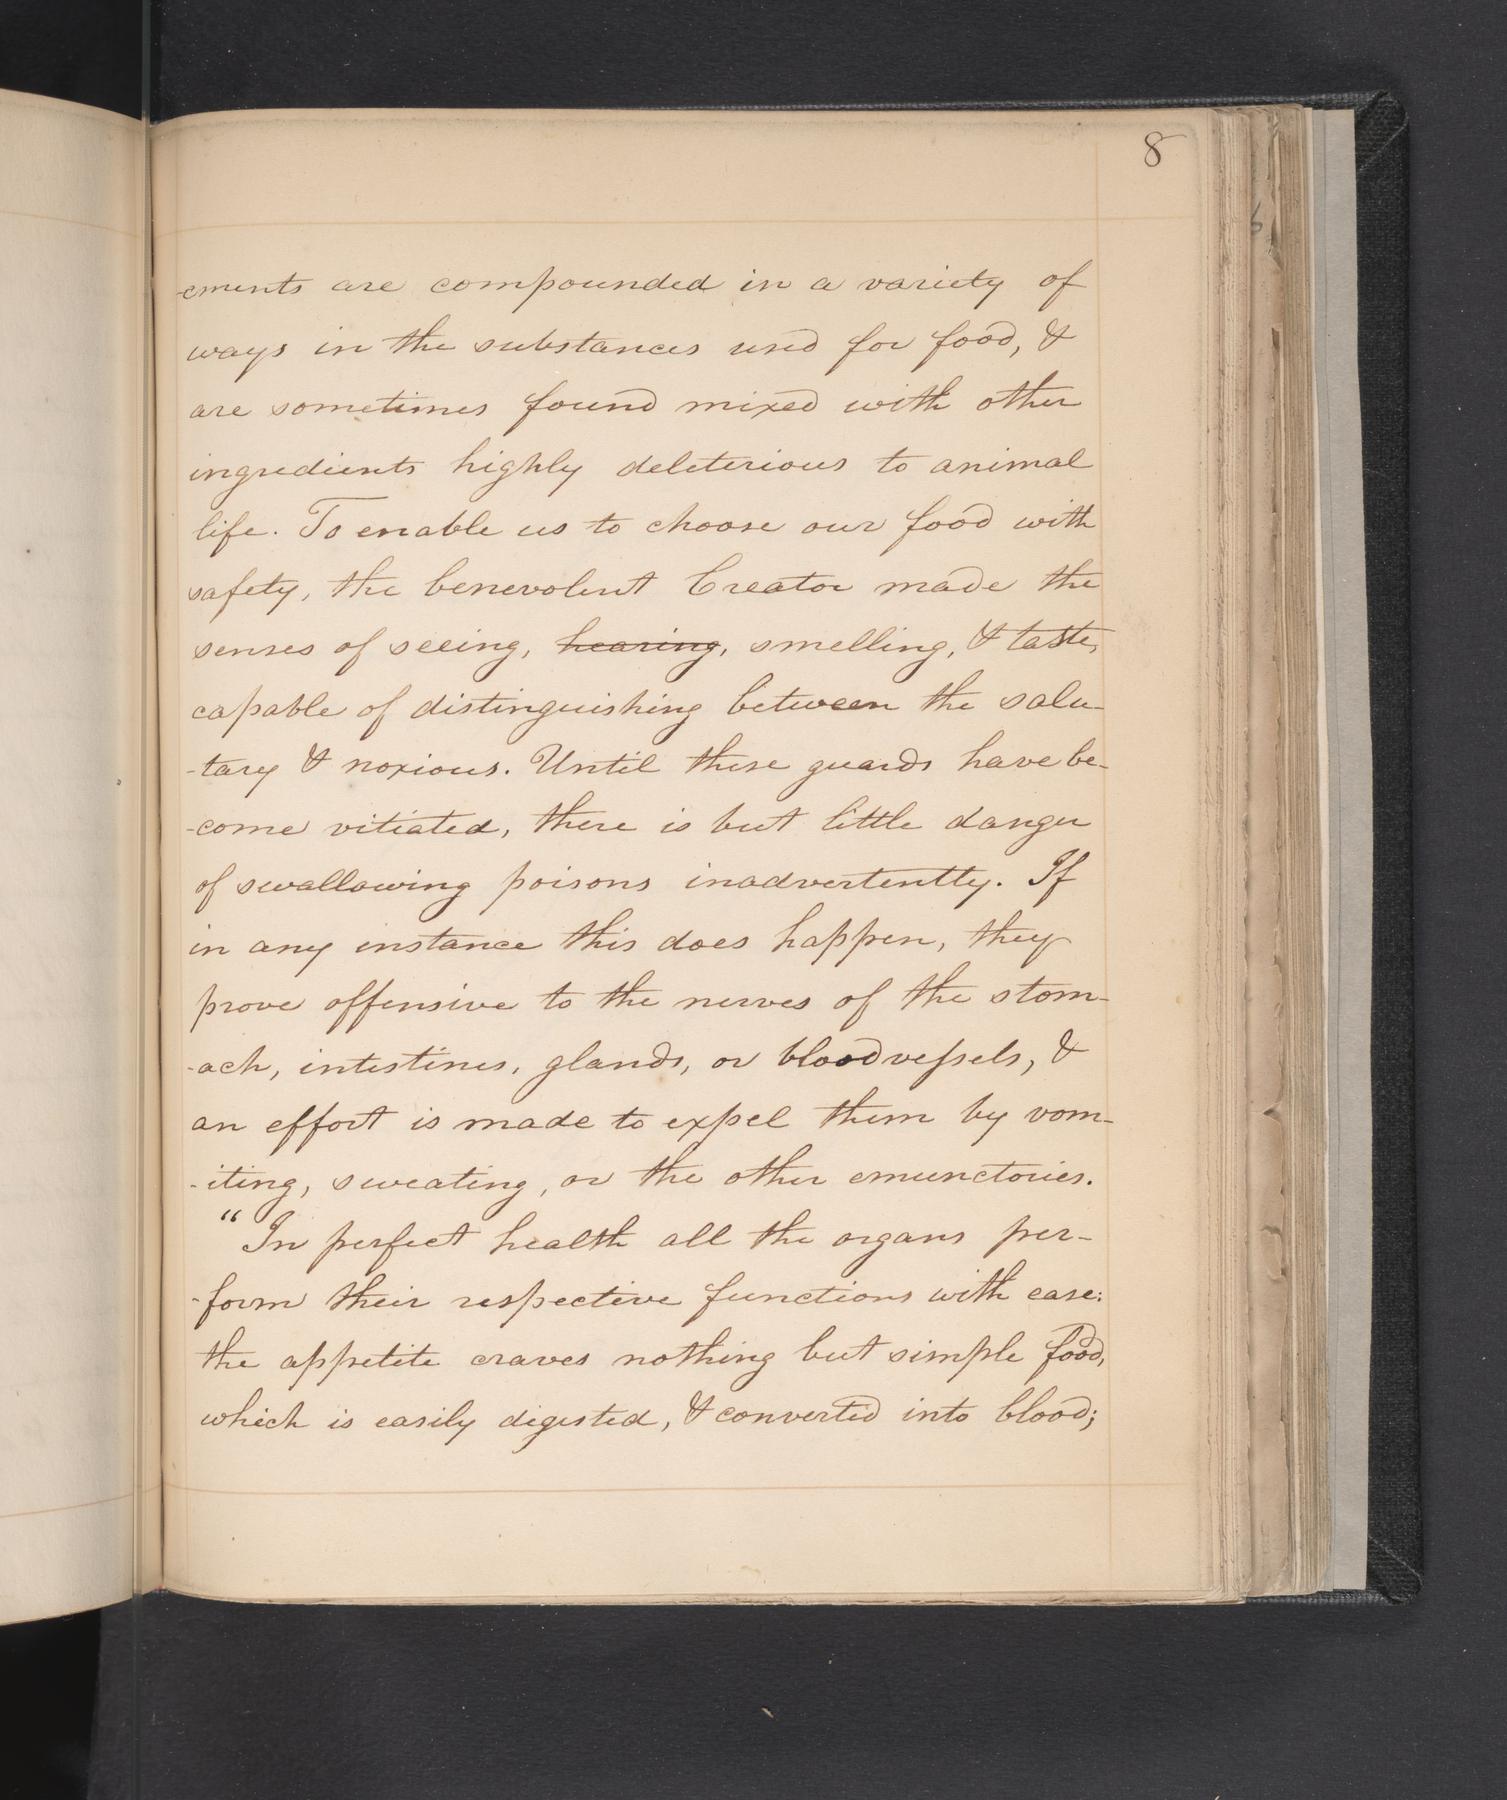 8
-ements are compounded in a variety of
ways in the substances used for food, &
are sometimes found mixed with other
ingredients highly deleterious to animal
life. To enable us to choose our food with
safety, the benevolent Creator made the
senses of seeing, hearing, smelling, & taste,
capable of distinguishing between the salu-
-tary & noxious. Until these guards have be-
-come vitiated, there is but little danger
of swallowing poisons inadvertently. If
in any instance this does happen, they
prove offensive to the nerves of the stom-
-ach, intestines, glands, or bloodvessels, &
an effort is made to expel them by vom-
-iting, sweating, or the other emunctories.
"In perfect health all the organs per-
-form their respective functions with ease:
the appetite craves nothing but simple food,
which is easily digested, & converted into blood;